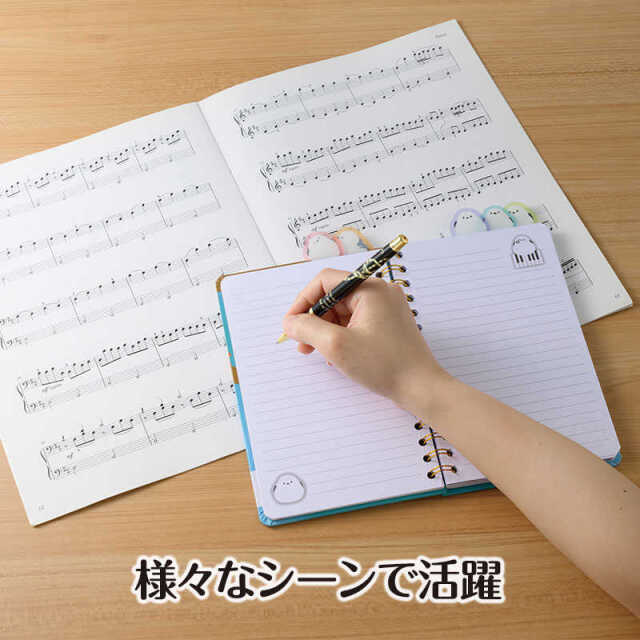 様々なシーンで活躍